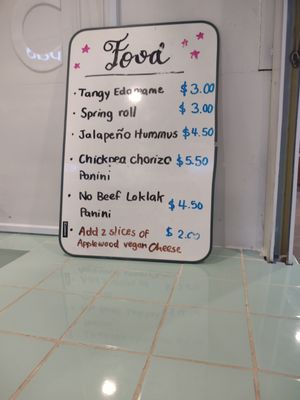 Food
· Tangy Edamame $3.00
· Spring roll $3.00
· Jalapeño Hummus $4.50
· Chickpea chorizo $5.50
Panini
· No Beef Loklak $4.50
Panini
· Add 2 slices of $2.00
Applewood vegan Cheese